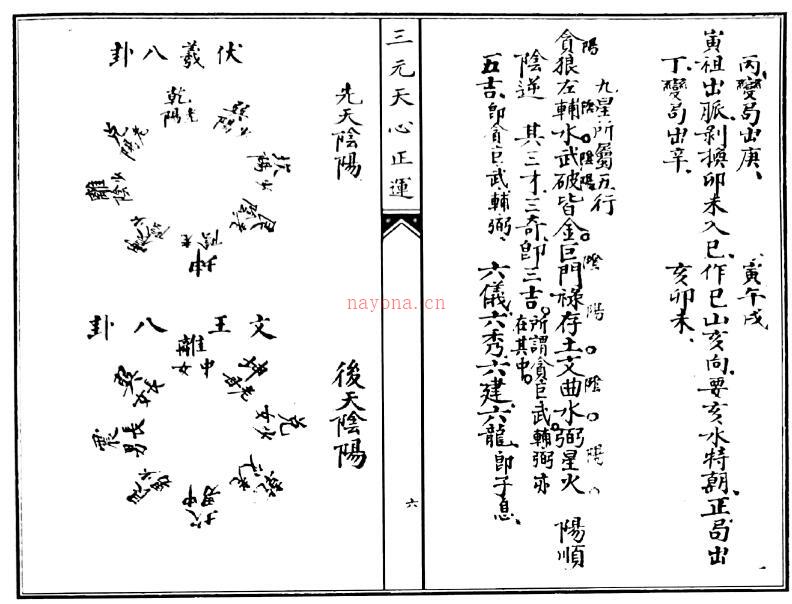 丙變局出庚、 寅午戌
寅祖出脈、剝換卯未入巳、作巳山亥向、要亥水特朝、正局出
丁、變局出辛、 亥卯未、
九星所屬五行
陽 陰 陰 陰陽 陰 陽 陰 陽
貪狼左輔水武破皆金巨門祿存土文曲水弼星火 陽順
陰逆 其三才三奇、即三吉。所謂貪巨武輔弼亦
在其中。
五吉、即貪巨武輔弼、六儀六秀六建六龍即子息、
三元天心正運
六
先天陰陽
伏羲八卦
乾 老陽
兌
離 少陰
坤 老陰
艮
坎
後天陰陽
文王八卦
離 中女
坤
兌 少女
乾
坎 中男
震 長男
巽 長女
nayona.cn